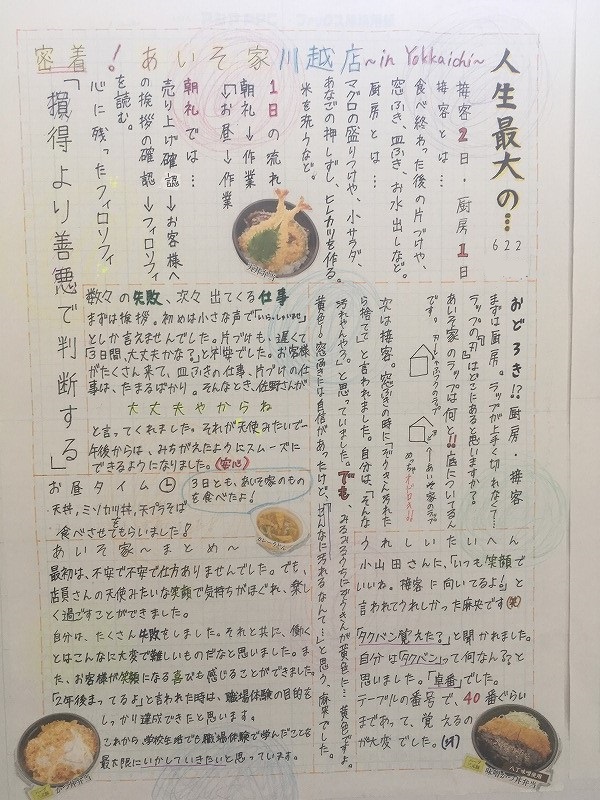 密着！あいそ家川越店～in Yokkaichi～
人生最大の…
622
接客2日・厨房1日
接客とは…
食べ終わった後の片づけや、
窓ふき、皿ふき、お水出しなど。
厨房とは…
マグロの盛りつけや、小サラダ、
あなごの押しずし、ヒレカツを作る。
米を洗うなど。
1日の流れ
朝礼→作業
→お昼→作業
朝礼では…
売り上げ確認→お客様へ
の挨拶の確認→フィロソフィ
を読む。
心に残ったフィロソフィ
「損得より善悪で判断する」
おどろき!?厨房・接客
まずは厨房。ラップが上手く切れなくて…
ラップの「刃」はどこにあると思いますか?
あいそ家のラップは何と!!底についてるん
です。
次は接客。窓ふきの時に「ぞうきん汚れた
ら捨てて」と言われました。自分は、「そんな
汚れやんやろ」と思っていました。でも、
みるみるうちにぞうきんが黄色に…黄色ですよ。
黄色!窓ふきには自信があったけど、「ぜんなに汚れるなんて…」と思う、麻央でした。
数々の失敗、次々出てくる仕事
まずは挨拶。初めは小さな声で「いらっしゃいませ」
としか言えませんでした。片づけも、遅くて
「3日間、大丈夫かな?」と不安でした。お客様
がたくさん来て、皿ふきの仕事、片づけの仕
事は、たまるばかり。そんなとき、佐野さんが
大丈夫やからね
と言ってくれました。それが天使みたいで…
午後からは、みちがえたようにスムーズに
できるようになりました。(安心)
お昼タイム
3日とも、あいそ家のもの
を食べたよ!
天丼、ミソカツ丼、天ぷらそば
を食べさせてもらいました!
カレーうどん
あいそ家～まとめ～
最初は、不安で不安で仕方ありませんでした。でも、
店員さんの天使みたいな笑顔で気持ちがほぐれ、楽し
く過ごすことができました。
自分は、たくさん失敗をしました。それと共に、働く
とはこんなに大変で難しいものだなと思いました。ま
た、お客様が笑顔になる喜びも感じることができました。
「2年後まってるよ」と言われた時は、職場体験の目的を
しっかり達成できたと思います。
これから、学校生活でも職場体験で学んだことを
最大限にいかしていきたいと思っています。
うれしい たいへん
小山田さんに、「いつも笑顔で
いいね。接客に向いてるよ!」と
言われてうれしかった麻央です(笑)
「タクバン覚えた?」と聞かれました。
自分は「タクバン」って何なん??と
思いました。「卓番」でした。
テーブルの番号で、40番ぐらい
まであって、覚えるの
が大変でした。(汗)
かつ丼弁当
八丁味噌使用
味噌かつ丼弁当